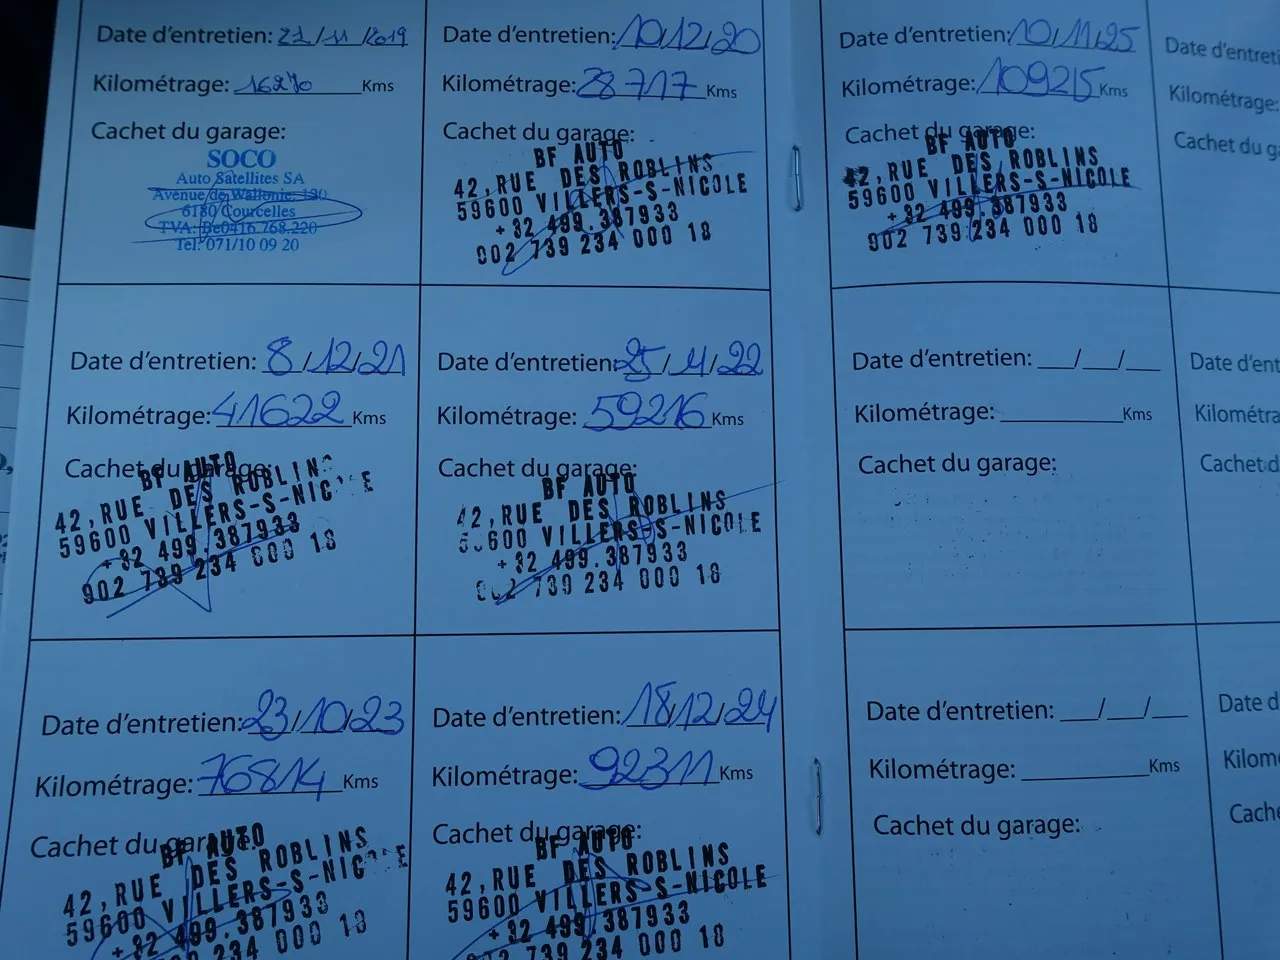 Date d'entretien: 21/11/2019
Kilométrage: 16270 Kms
Cachet du garage:
SOCO
Auto Satellites SA
Avenue de Wallonie, 130
6180 Courcelles
TVA: Be0416.768.220
Tel: 071/10 09 20
Date d'entretien: 10/12/20
Kilométrage: 28717 Kms
Cachet du garage:
BF AUTO
42, RUE DES ROBLINS
59600 VILLERS-S-NICOLE
+32 499.387933
902 739 234 000 18
Date d'entretien: 8/12/21
Kilométrage: 41622 Kms
Cachet du garage:
BF AUTO
42, RUE DES ROBLINS
59600 VILLERS-S-NICOLE
+32 499.387933
902 739 234 000 18
Date d'entretien: 25/11/22
Kilométrage: 59216 Kms
Cachet du garage:
BF AUTO
42, RUE DES ROBLINS
59600 VILLERS-S-NICOLE
+32 499.387933
902 739 234 000 18
Date d'entretien: 23/10/23
Kilométrage: 76814 Kms
Cachet du garage:
BF AUTO
42, RUE DES ROBLINS
59600 VILLERS-S-NICOLE
+32 499.387933
234 000 18
Date d'entretien: 18/12/24
Kilométrage: 92311 Kms
Cachet du garage:
BF AUTO
42, RUE DES ROBLINS
59600 VILLERS-S-NICOLE
+32 499.387933
902 739 234 000 18
Date d'entretien: 10/11/25
Kilométrage: 109215 Kms
Cachet du garage:
BF AUTO
42, RUE DES ROBLINS
59600 VILLERS-S-NICOLE
+32 499.387933
902 739 234 000 18
Date d'entretien: __/__/__
Kilométrage: ________ Kms
Cachet du garage:
Date d'entretien: __/__/__
Kilométrage: ________ Kms
Cachet du garage:
Date d'entreti
Kilométrage:
Cachet du ga
Date d'ent
Kilométra
Cachet d
Date d
Kilom
Cache